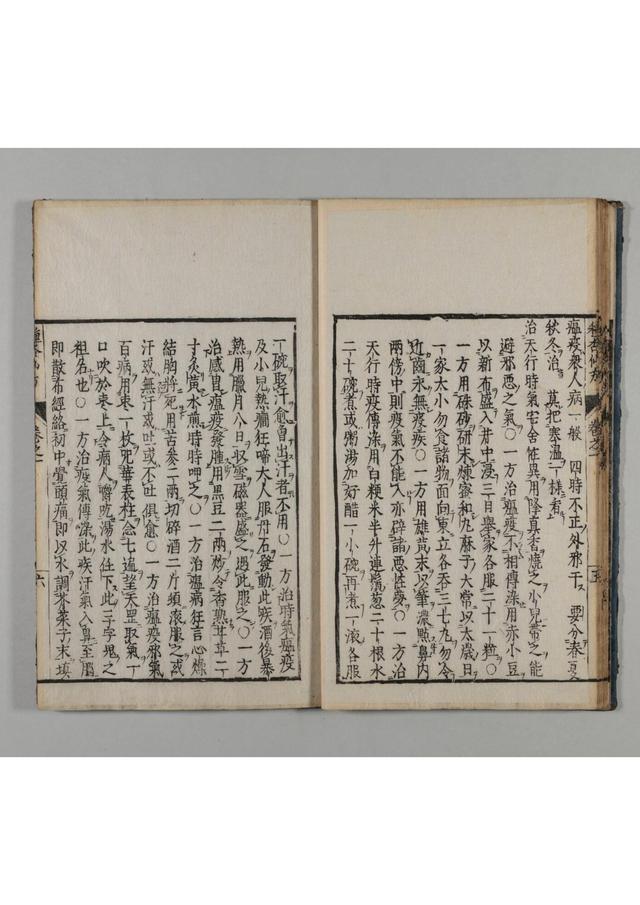 種杏仙方 卷之一 五
瘟疫衆人病一般 四時不正外邪干 要分春夏
秋冬治 莫把寒溫一樣看
治天行時氣宅舍怪異用降真香燒之小兒帶之能
避邪惡之氣○一方治瘟疫不相傳染用赤小豆
以新布盛入井中浸三日舉家各服二十一粒○
一方用硃砂研末煉蜜和丸麻子大常以太歲日
一家大小勿食諸物面向東立各吞三七丸勿令
近齒永無疫疾○一方用雄黃末以筆濃點鼻內
兩傍中則疫氣不能入亦辟諸惡怪夢○一方治
天行時疫傳染用白粳米半升連鬚葱二十根水
二十碗煮成粥湯加好醋一小碗再煮一滾各服
一碗取汗愈自出汗者不用○一方治時氣瘟疫
及小兒熱癎狂啼大人服丹石發動此疾酒後暴
熱用臘月八日収雪磁器盛之遇此服之○一方
治感冒瘟疫發腫用黑豆二兩炒令香熟甘草二
寸炙黃水煎時時呷之○一方治瘟病狂言心燥
結胸將死用苦參一兩切碎酒二片頻滾服之或
汗或無汗或吐或不吐俱愈○一方治瘟疫邪氣
百病用枣一枚死華表柱念七遍望天罡取氣一
口吹於枣上令病人嚼吃湯水任下此三字鬼之
祖名也○一方治疫氣傳染此疾汗氣入鼻至腦
即散布經絡初中覺頭痛即以水調芥菜子末填
種杏仙方 卷之一 六